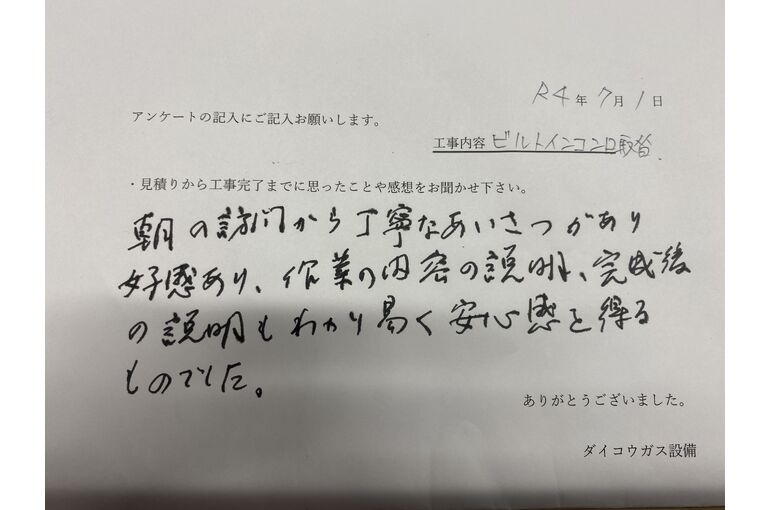 R4年7月1日
アンケートの記入にご記入お願いします。
工事内容 ビルトインコンロ取替
・見積りから工事完了までに思ったことや感想をお聞かせ下さい。
朝の訪問から丁寧なあいさつがあり
好感あり、作業の内容の説明、完成後
の説明もわかり易く安心感を得る
ものでした。
ありがとうございました。
ダイコウガス設備